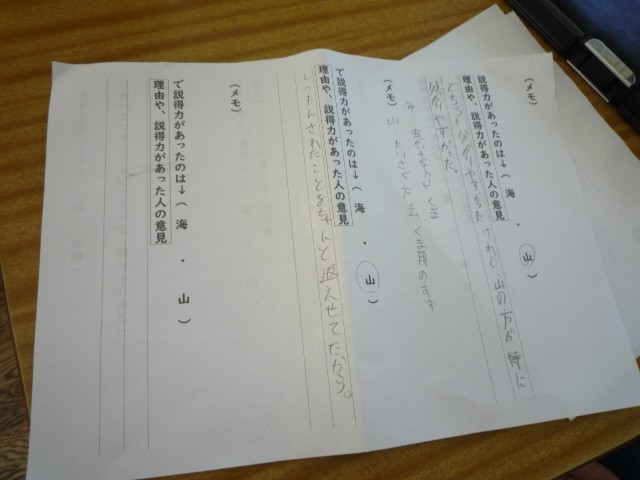 （メモ）
説得力があったのは→（ 海 ・ 山 ）
理由や、説得力があった人の意見
どちらも分かりやすかったけれど、山の方が特に
分かりやすかった。
（メモ）
海
山
で説得力があったのは→（ 海 ・ 山 ）
理由や、説得力があった人の意見
しつもんされたことをちゃんと返えせてたから。
（メモ）
で説得力があったのは→（ 海 ・ 山 ）
理由や、説得力があった人の意見